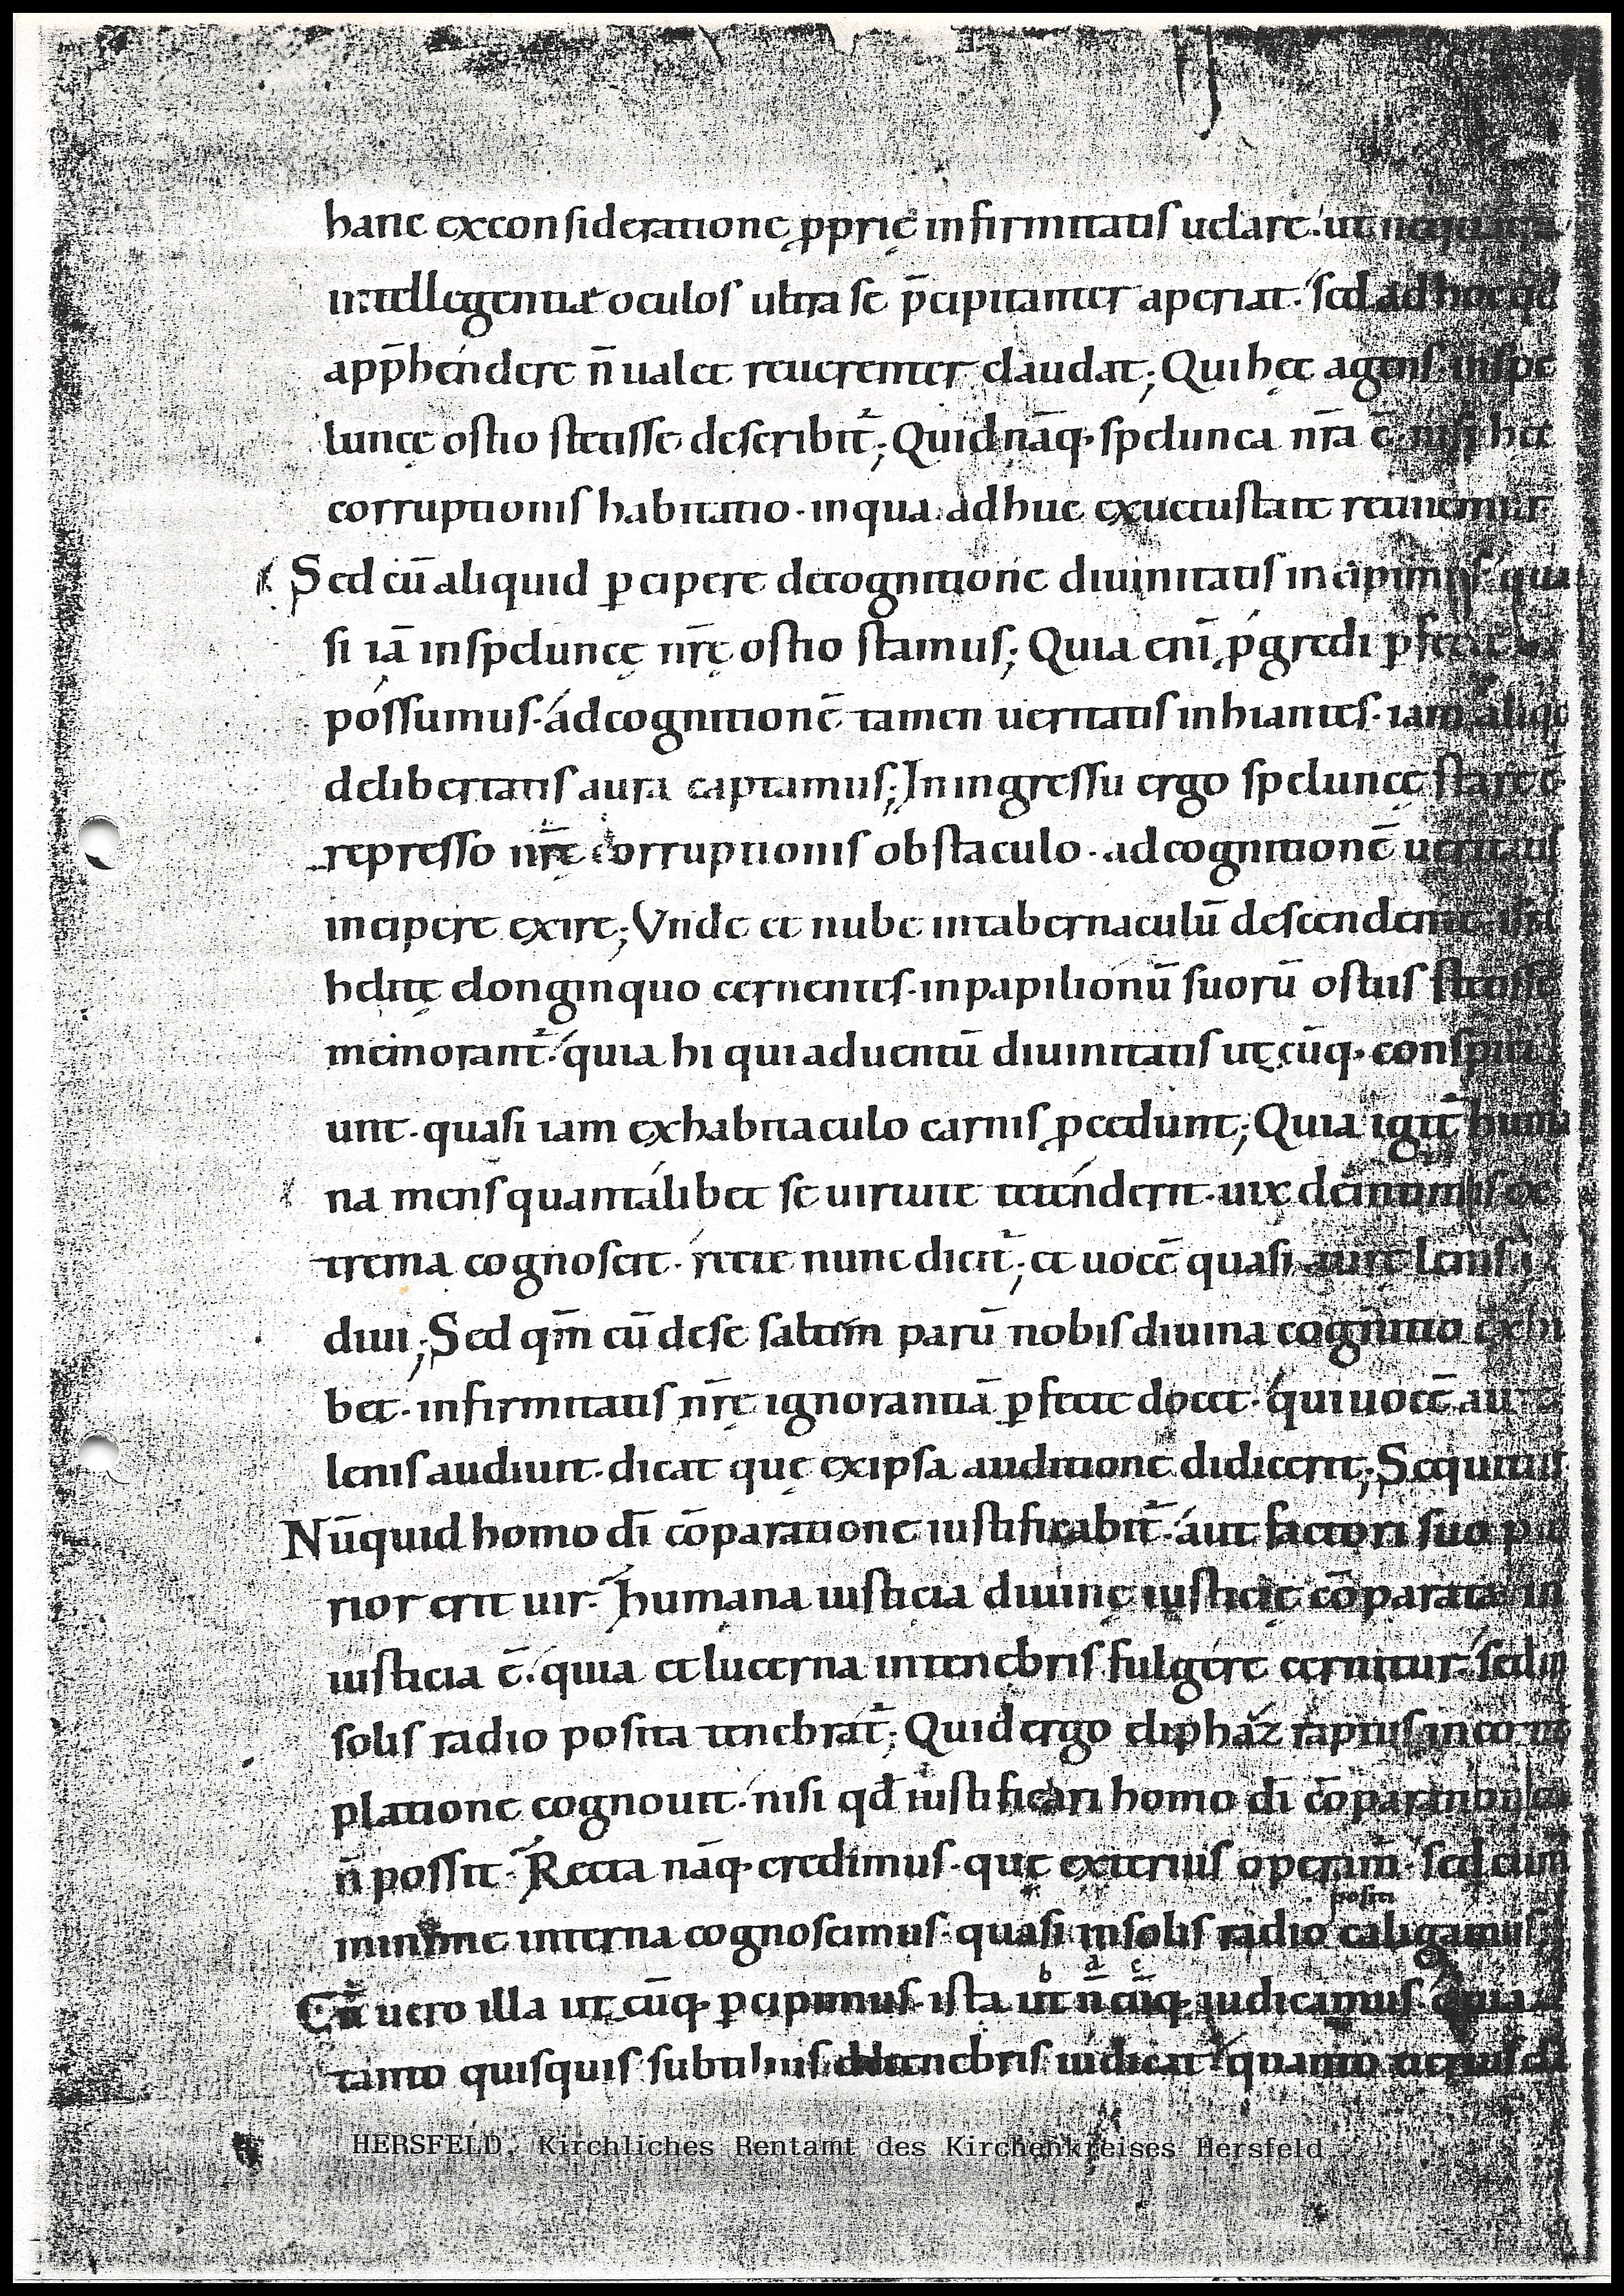 hanc exconsideratione ꝓprię infirmitatis uelare.' ut nequaquā
intellegentiæ oculos ultra se p̄cipitanter aperiat.' sed ad hoc qđ
app̄hendere n̄ ualet reuerenter claudat; Qui hęc agens inspe
luncę ostio stetisse describit̄; Quid nāq· spelunca nr̄a ē· nisi hęc
corruptionis habitatio· in qua adhuc exuetustate retinemur
Sed cū aliquid ꝑcipere decognitione diuinitatis incipimus.' qua
si iā inspeluncę nr̄ę ostio stamus; Quia enī ꝓgredi ꝑfecte n̄
possumus· adcognitionē tamen ueritatis inhiantes· iam aliqđ
delibertatis aura captamus; In ingressu ergo speluncę stare ē·
represso nr̄ę corruptionis obstaculo· adcognitionē ueritatis
incipere exire; Vnde et nube intabernaculū descendente· isra
helitę elonginquo cernentes· inpapilionū suorū ostiis stetisse
memorant̄.' quia hi qui aduentū diuinitatis utcūq· conspici
unt· quasi iam exhabitaculo carnis ꝓcedunt; Quia igit̄ huma
na mens quantalibet se uirtute tetenderit· uix deintimis ex
trema cognoscit· recte nunc dicit̄; et uocē quasi aurę lenis
diui; Sed qm̄ cū dese saltim parū nobis diuina cognitio exhi
bet· infirmitatis nr̄ę ignorantiā ꝑfecte docet· qui uocē aurę
lenis audiuit· dicat quę exipsa auditione didicerit; Sequitur
Nūquid homo dī cōparatione iustificabit̄.' aut factori suo pu
rior erit uir· Humana iusticia diuinę iusticię cōparata in
iusticia ē.' quia et lucerna intenebris fulgere cernitur.' sed in
solis radio posita tenebrat̄; Quid ergo eliphaz raptus incontē
platione cognouit· nisi qđ iustificari homo dī cōparatione
n̄ possit· Recta nāq· credimus· quę exterius operam̄.' sed cum
minime interna cognoscimus· quasi insolis radio caligamus;
positi
Cū uero illa utcūq· ꝑcipimus· ista ut n̄ cūq· iudicamus· quia
b d c
tanto quisquis subtilius detenebris iudicat· quanto uerius
HERSFELD, Kirchliches Rentamt des Kirchenkreises Hersfeld